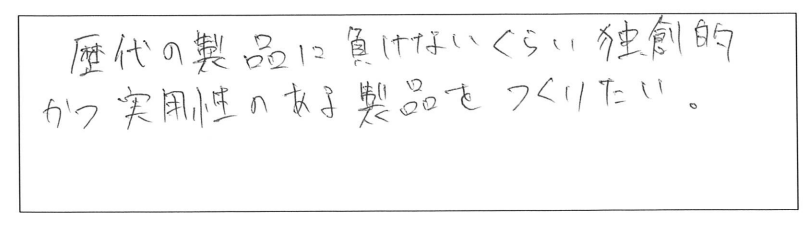 歴代の製品に負けないくらい独創的
かつ実用性のある製品をつくりたい。